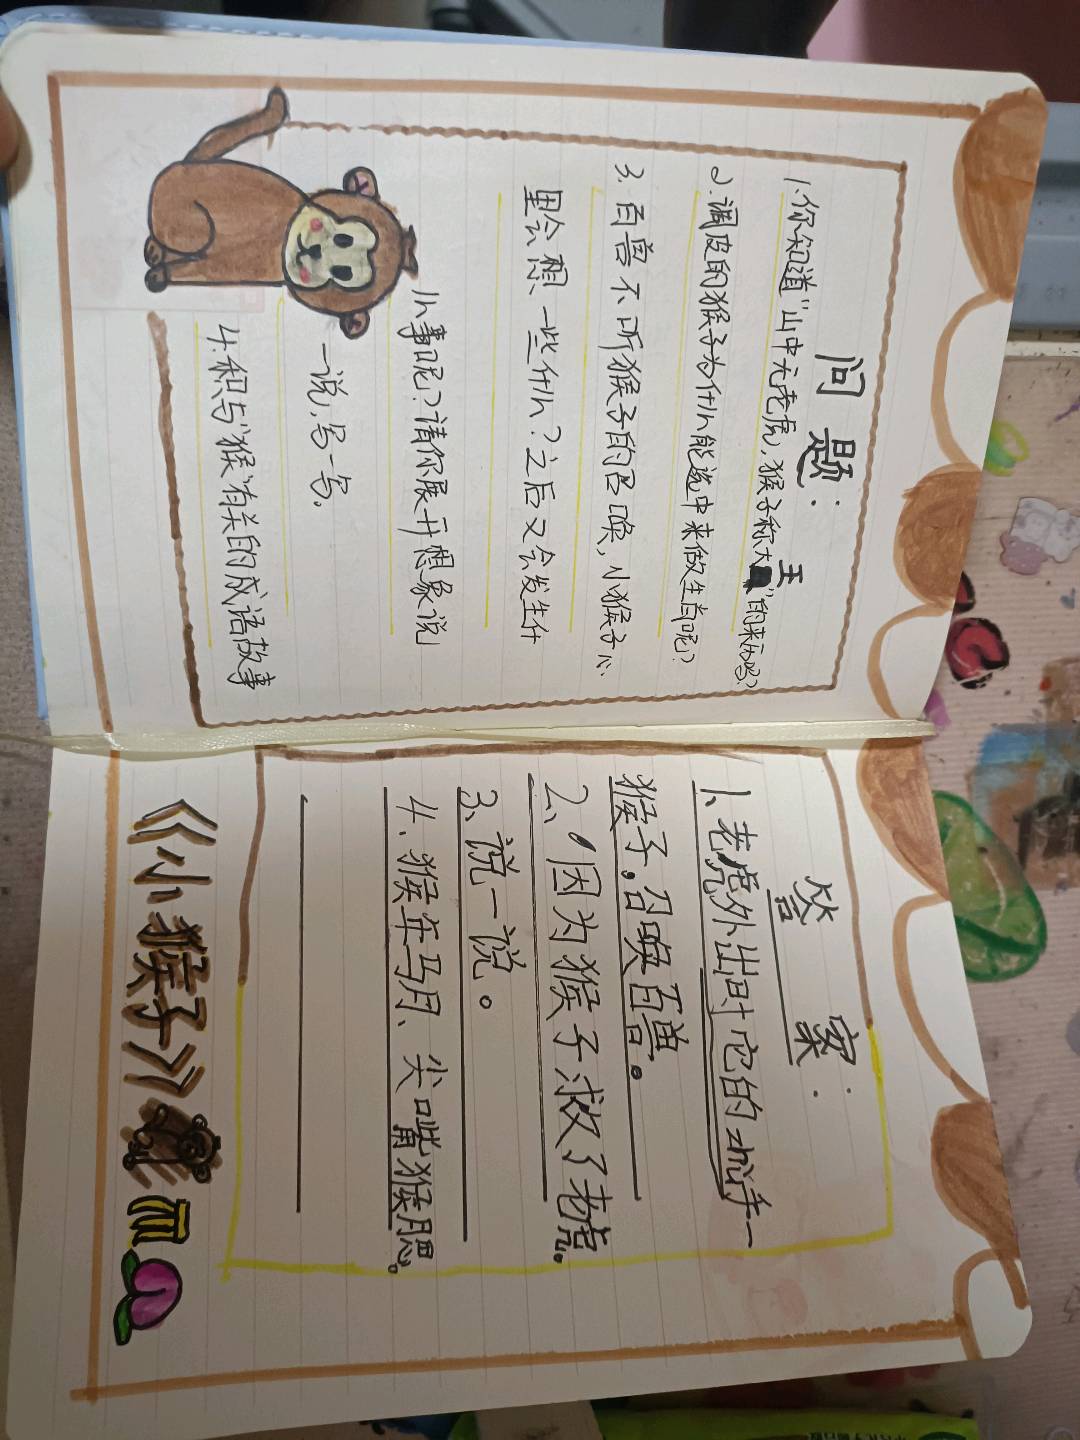 问题：
1.你知道“山中无老虎，猴子称大王”的来历吗？
2.调皮的猴子为什么能选中来做生肖呢？
3.百兽不听猴子的召唤，小猴子心
里会想一些什么？之后又会发生什
么事呢？请你展开想象说
一说，写一写。
4.积与“猴”有关的成语故事
答案：
1、老虎外出时它的zhù手一
猴子。召唤百兽。
2、因为猴子求救了老虎。
3、说一说。
4、猴年马月、尖嘴猴腮。
《小猴子》